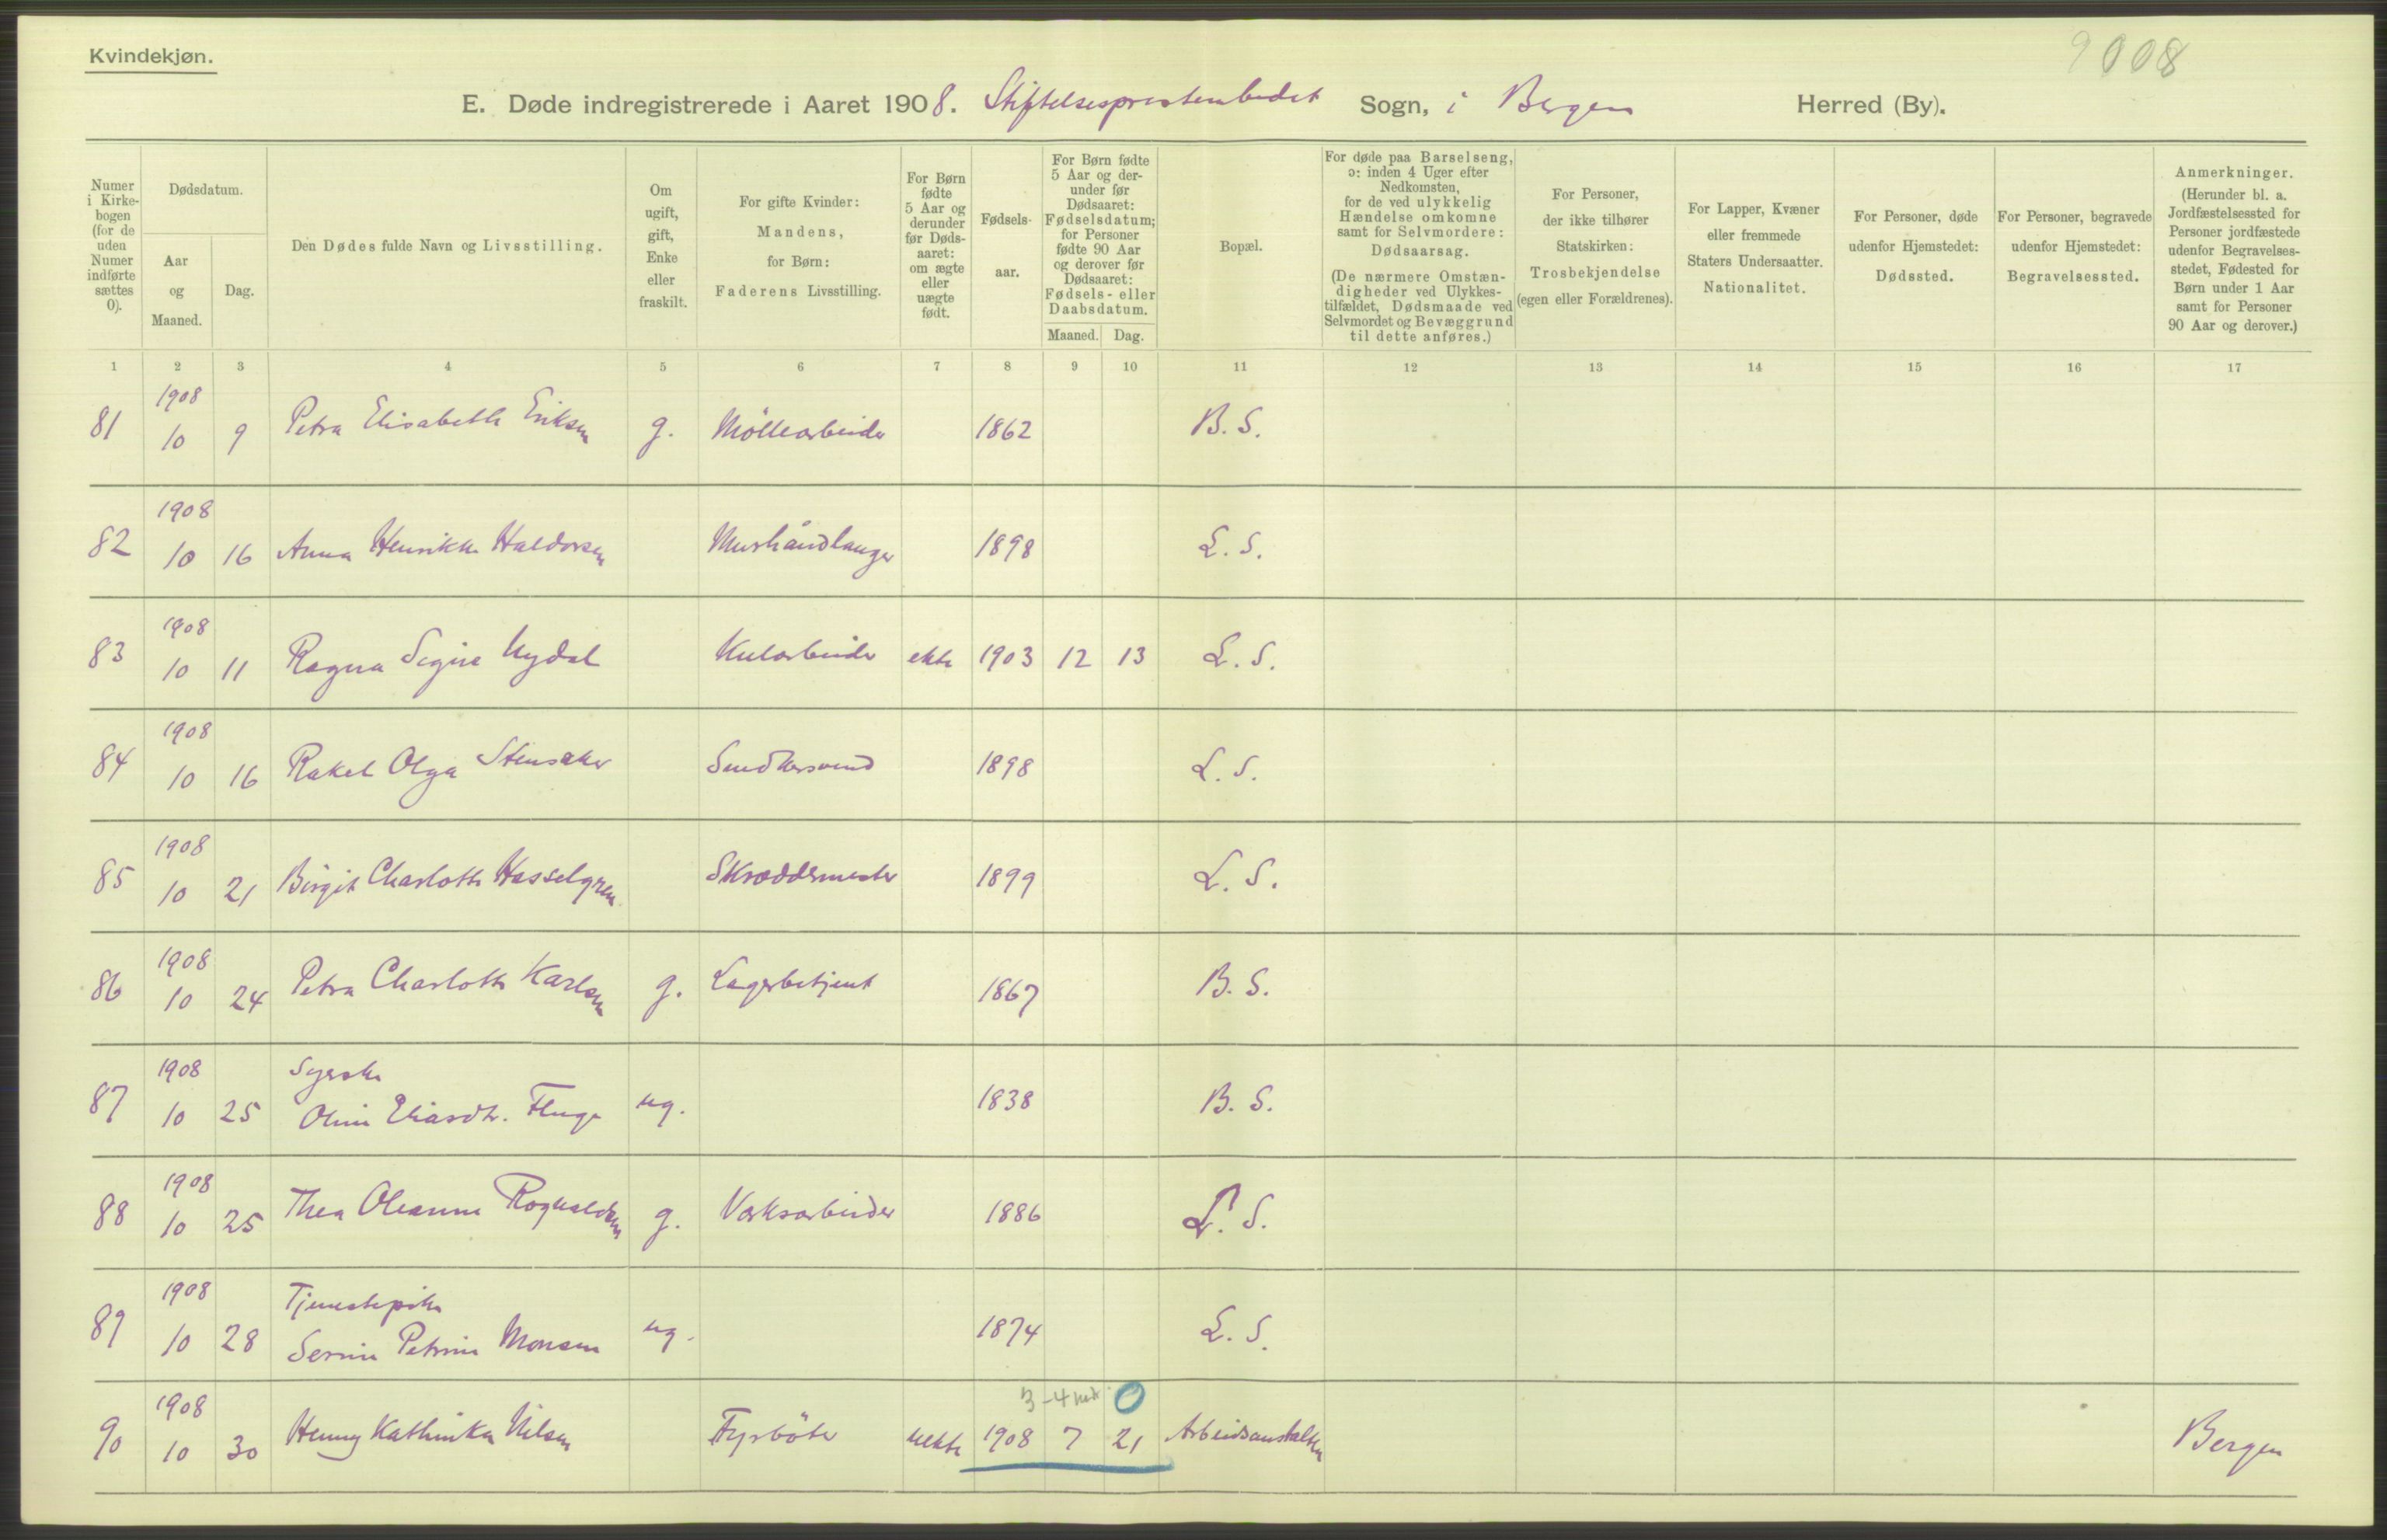 Kvindekjøn.
9008
E. Døde indregistrerede i Aaret 1908. Stiftelsesprestembedet Sogn, i Bergen Herred (By).
Numer i Kirkebogen (for de uden Numer indførte sættes 0).
Dødsdatum.
Aar og Maaned.
Dag.
Den Dødes fulde Navn og Livsstilling.
Om ugift, gift, Enke eller fraskilt.
For gifte Kvinder: Mandens, for Børn: Faderens Livsstilling.
For Børn fødte 5 Aar og derunder før Dødsaaret: om ægte eller uægte født.
Fødselsaar.
For Børn fødte 5 Aar og derunder før Dødsaaret: Fødselsdatum; for Personer fødte 90 Aar og derover før Dødsaaret: Fødsels- eller Daabsdatum.
Maaned. Dag.
Bopæl.
For døde paa Barselseng, ɔ: inden 4 Uger efter Nedkomsten, for de ved ulykkelig Hændelse omkomne samt for Selvmordere: Dødsaarsag. (De nærmere Omstændigheder ved Ulykkestilfældet, Dødsmaade ved Selvmordet og Bevæggrund til dette anføres.)
For Personer, der ikke tilhører Statskirken: Trosbekjendelse (egen eller Forældrenes).
For Lapper, Kvæner eller fremmede Staters Undersaatter. Nationalitet.
For Personer, døde udenfor Hjemstedet: Dødssted.
For Personer, begravede udenfor Hjemstedet: Begravelsessted.
Anmerkninger. (Herunder bl. a. Jordfæstelsessted for Personer jordfæstede udenfor Begravelsesstedet, Fødested for Børn under 1 Aar samt for Personer 90 Aar og derover.)
1 2 3 4 5 6 7 8 9 10 11 12 13 14 15 16 17
81 1908 10 9 Petra Elisabeth Eriksen g. Möllearbeider 1862 B. S.
82 1908 10 16 Anna Henrikke Haldorsen Murhåndlanger 1898 L. S.
83 1908 10 11 Ragna Signe Nydal Kularbeider ekte 1903 12 13 L. S.
84 1908 10 16 Rakel Olga Stensaker Snedkersvend 1898 L. S.
85 1908 10 21 Birgit Charlotte Hasselgren Skræddermester 1899 L. S.
86 1908 10 24 Petra Charlotte Karlsen g. Lagerbetjent 1867 B. S.
87 1908 10 25 Syerske
Oline Eliasdtr. Fluge ug. 1838 B. S.
88 1908 10 25 Thea Oleanne Rognaldsen g. Verksarbeider 1886 L. S.
89 1908 10 28 Tjenestepike
Serine Petrine Monsen ug. 1874 L. S.
3-4 0
90 1908 10 30 Henny Kathinka Nilsen Fyrböter uekte 1908 7 21 Arbeidsanstalten Bergen